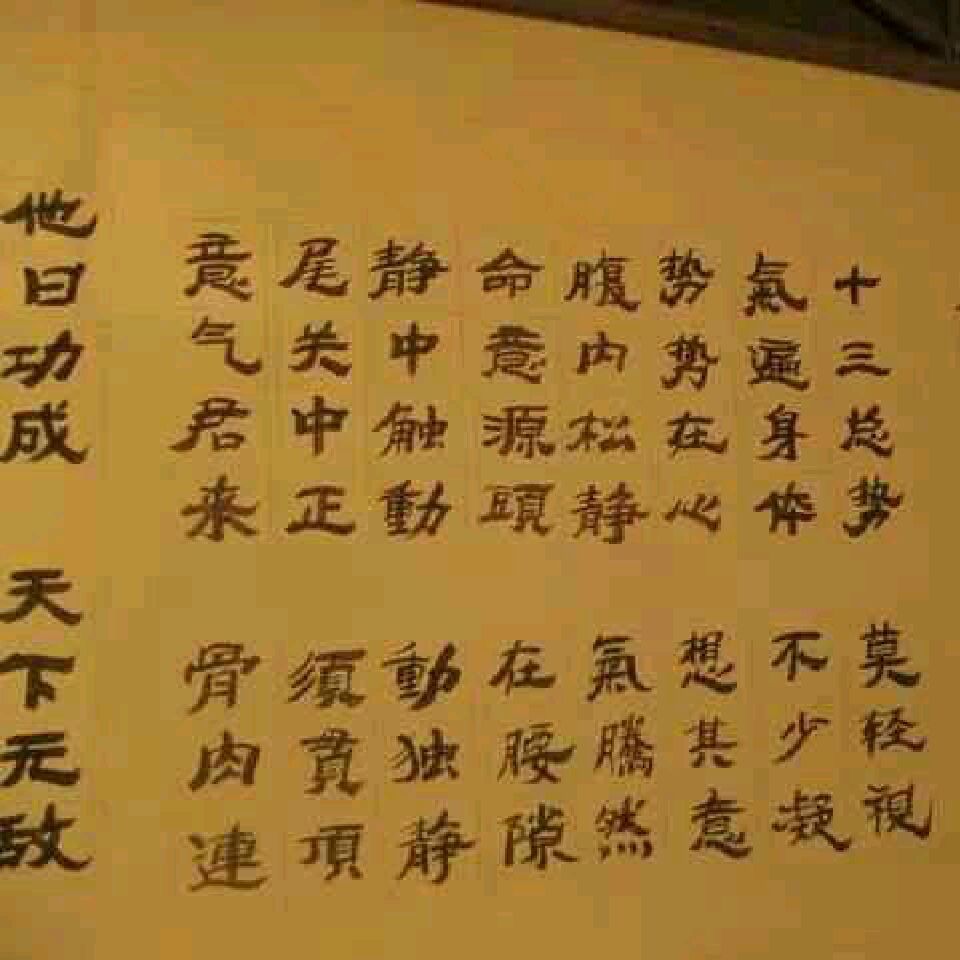 十三总势莫轻視
氣遍身体不少凝
势势在心想其意
腹内松静氣騰然
命意源頭在腰隙
静中触動動独静
尾关中正須貫頂
意气君来骨肉連
他日功成天下无敌